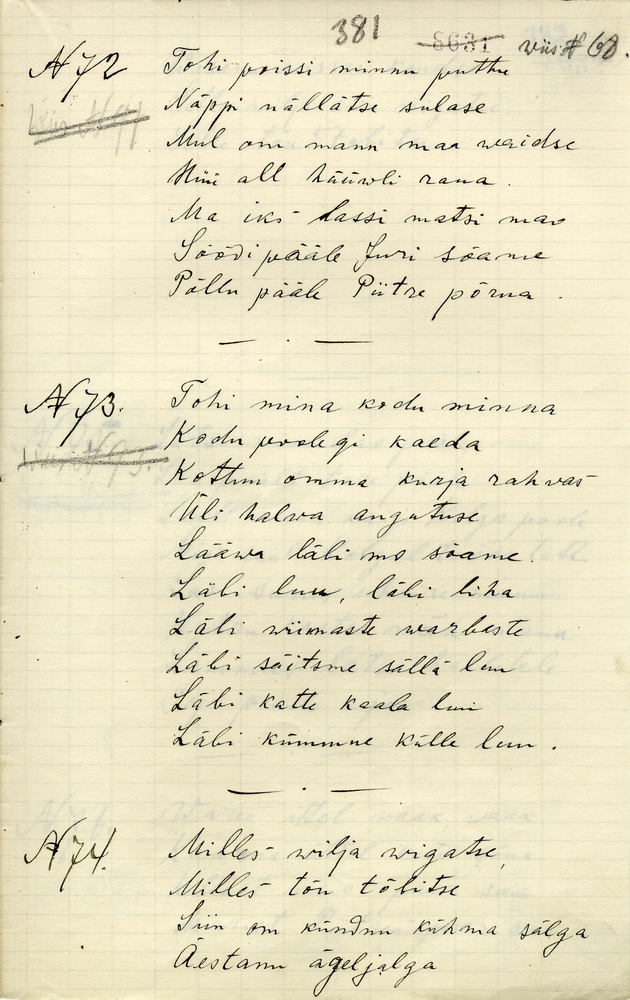 381 8631 wiis # 68.
N 72 Tohi poissi minnu puttu
Näppi nällätse sulase
Mul om mann maa waidse
Hüü all hääwli raua.
Ma iks lassi matsi mao
Söödi pääle Juri söame
Põllu pääle Piitre põrna.
N 73. Tohi mina kodu minna
Kodu poolegi kaeda
Kottun omma kurja rahwas
Üli halwa angutuse
Lääwa läbi mo söame.
Läbi luu, läbi liha
Läbi wiimaste warbaste
Läbi säitsme sällä luu
Läbi katte kaala luu
Läbi kümmne külle luu.
N 74. Milles wilja wigatse,
Milles tõu tõbitse
Siin om kündnu kühma sälga
Äestanu ägeljalga